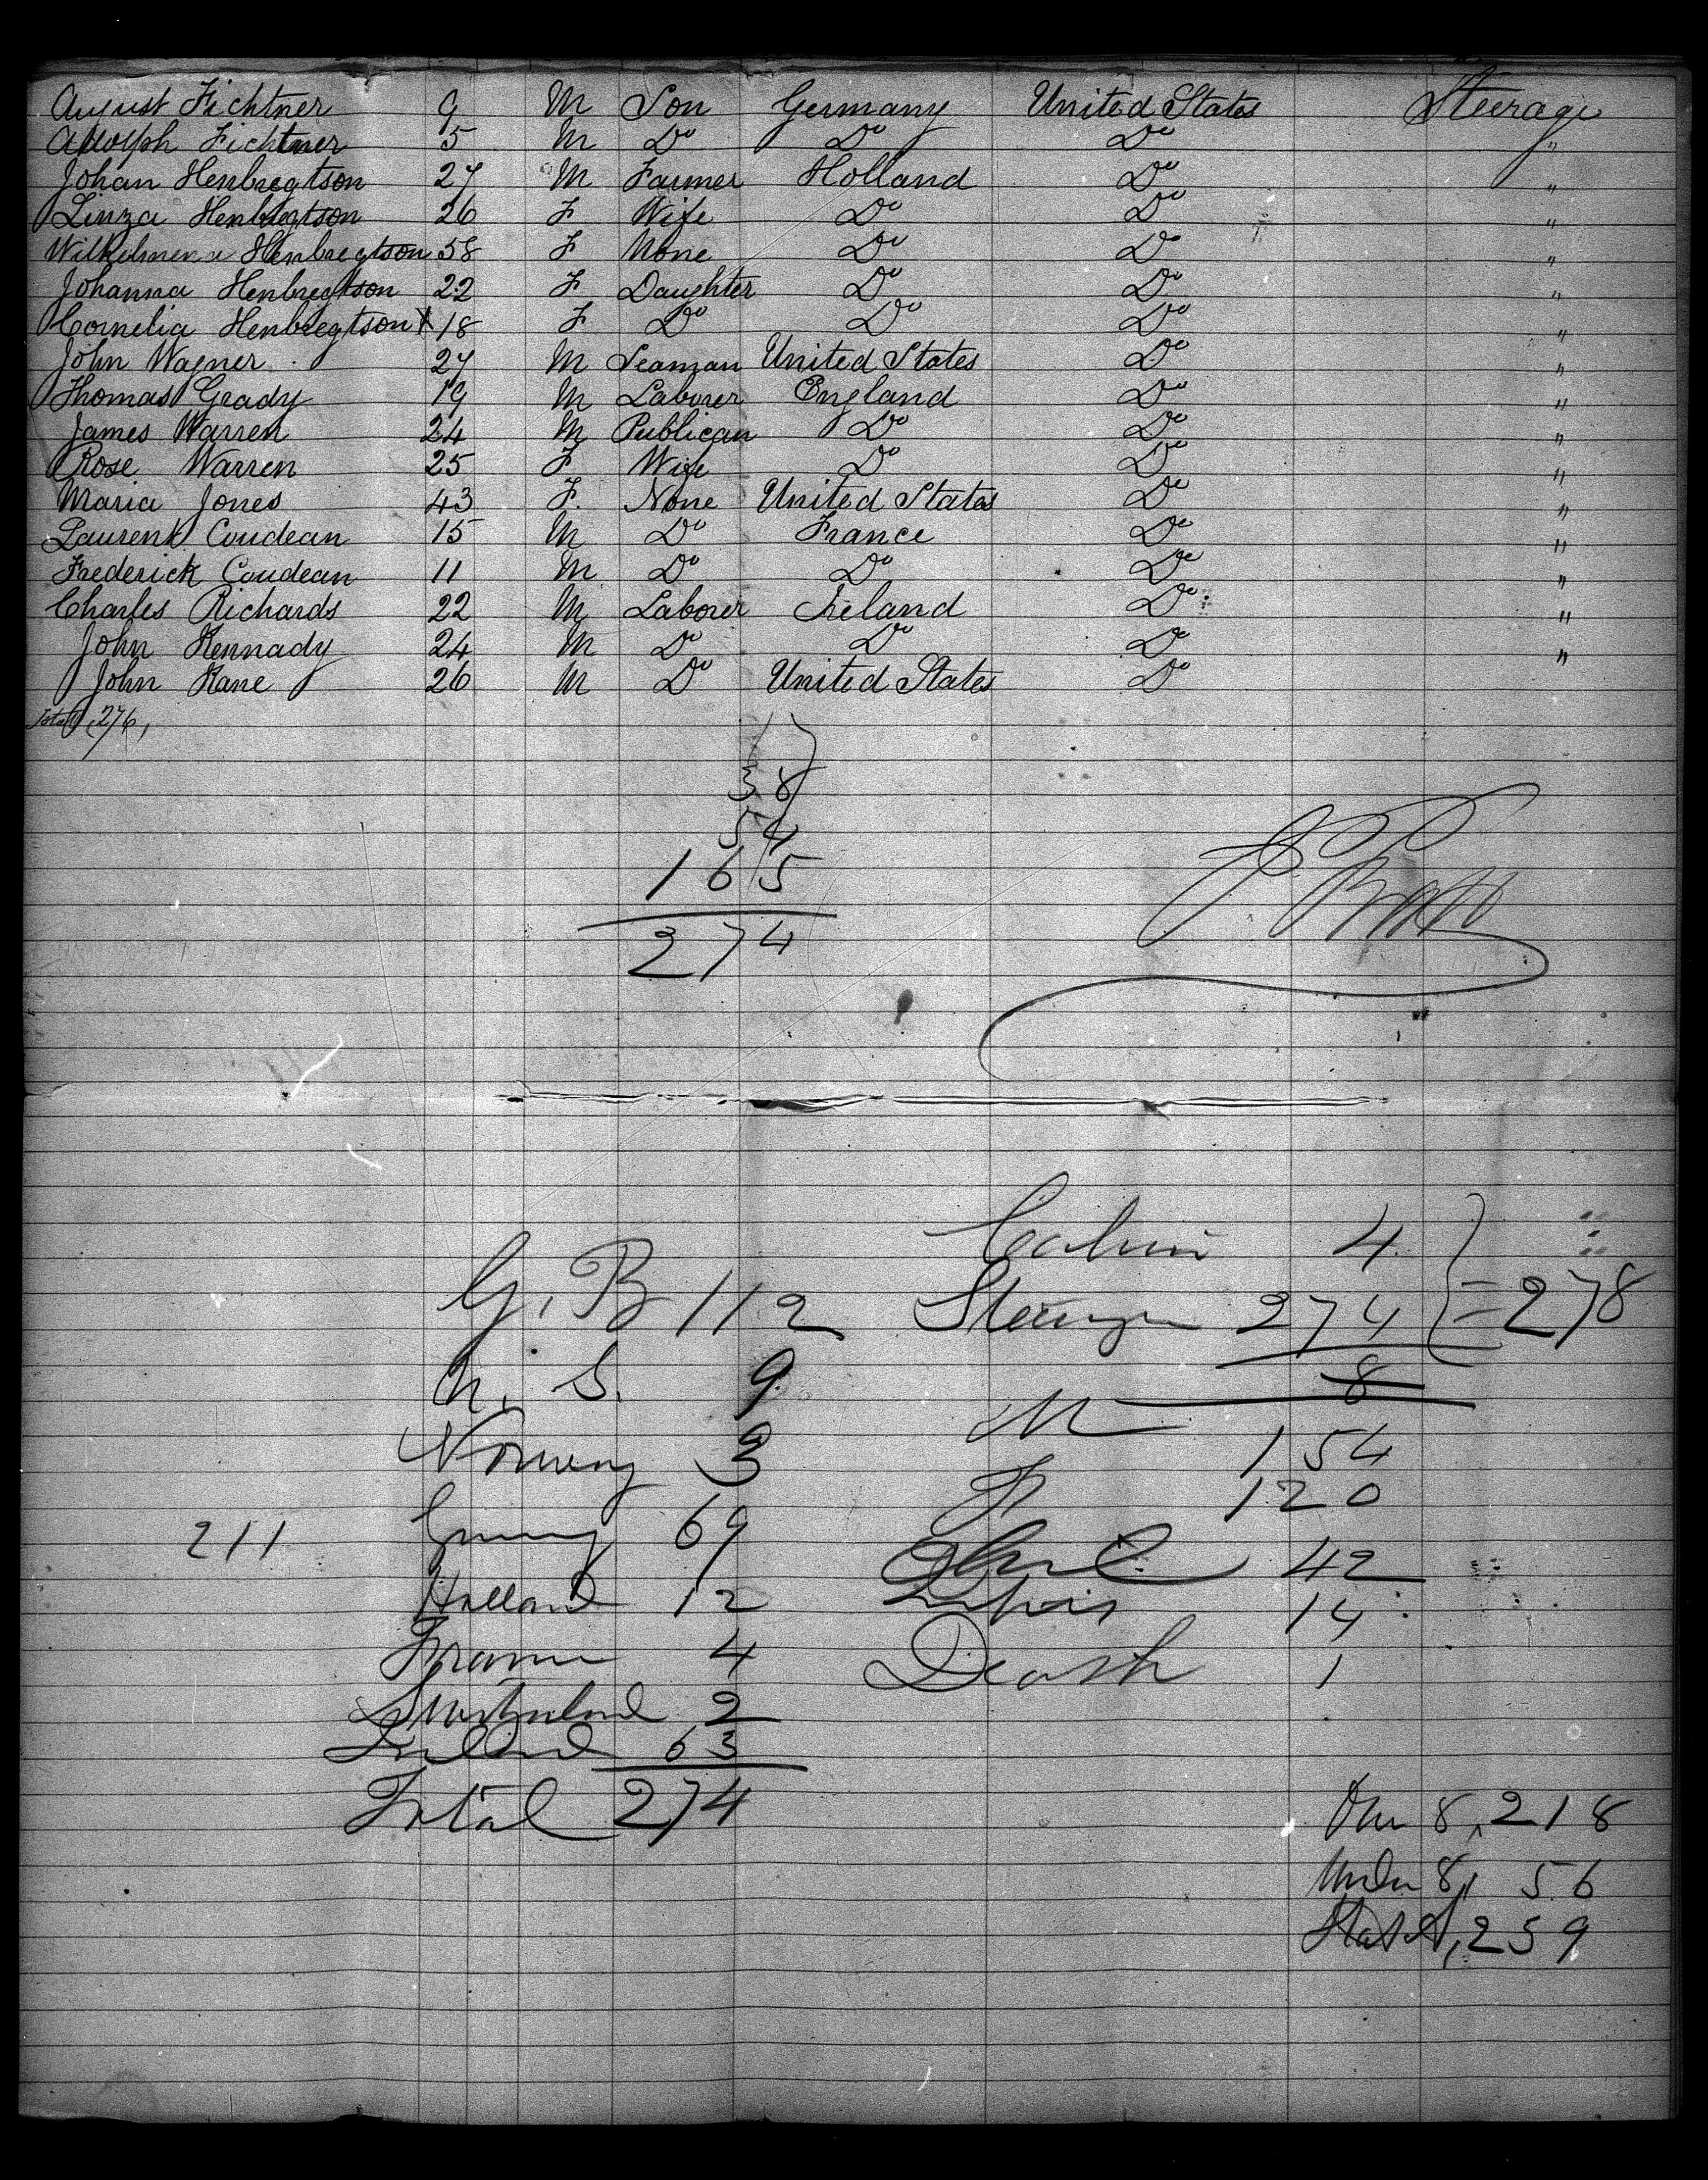 August Fichtner 9 M Son Germany United States Steerage
Adolph Fichtner 5 M Do Do Do "
Johan Henbregtson 27 M Farmer Holland Do "
Linza Henbregtson 26 F Wife Do Do "
Wilhelmena Henbregtson 58 F None Do Do "
Johanna Henbregtson 22 F Daughter Do Do "
Cornelia Henbregtson X 18 F Do Do Do "
John Wagner 27 M Seaman United States Do "
Thomas Grady 19 M Laborer England Do "
James Warren 24 M Publican Do Do "
Rose Warren 25 F Wife Do Do "
Maria Jones 43 F. None United States Do "
Laurent Coudean 15 M Do France Do "
Frederick Coudean 11 M Do Do Do "
Charles Richards 22 M Laborer Ireland Do "
John Kennady 24 M Do Do Do "
John Kane 26 M Do United States Do
Total 276,
38
54
165
274
Cabin 4
G. B 112 Steerage 274 = 278
U. S. 9 8
Norway 3 M 154
F 120
211 Germany 69
42
Holland 12 14
France 4 Death 1
Switzerland 2
Ireland 63
Total 274
Over 8, 218
Under 8, 56
259